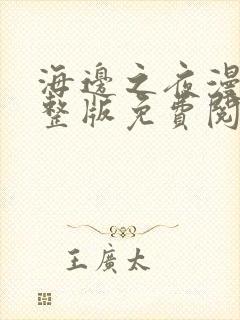 海邊之夜漫
整版免費閱
王廣太